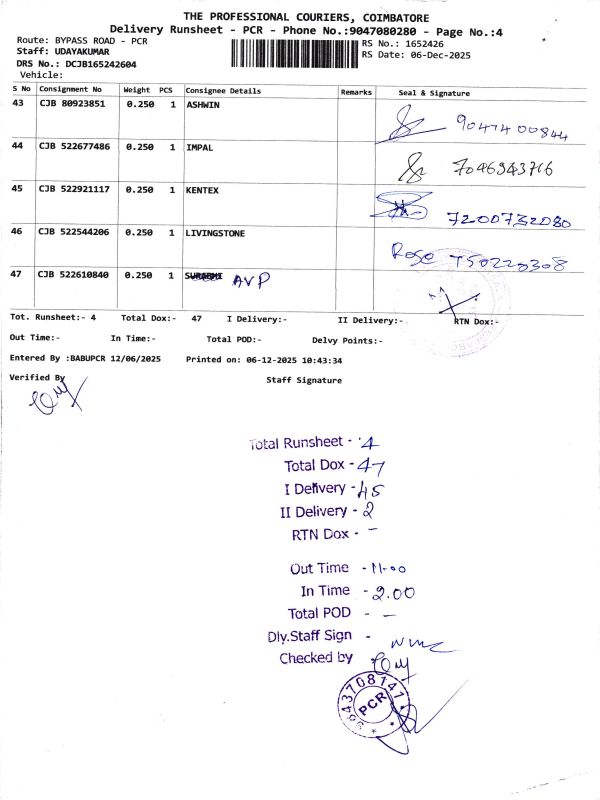 THE PROFESSIONAL COURIERS, COIMBATORE
Delivery Runsheet - PCR - Phone No.:9047080280 - Page No.:4
Route: BYPASS ROAD - PCR
RS No.: 1652426
Staff: UDAYAKUMAR
RS Date: 06-Dec-2025
DRS No.: DCJB165242604
Vehicle:
S No Consignment No Weight PCS Consignee Details Remarks Seal & Signature
43 CJB 80923851 0.250 1 ASHWIN
9047400844
44 CJB 522677486 0.250 1 IMPAL
7046943766
45 CJB 522921117 0.250 1 KENTEX
7200732080
46 CJB 522544206 0.250 1 LIVINGSTONE
Rose
47 CJB 522610840 0.250 1 AVP
Tot. Runsheet:- 4 Total Dox:- 47 I Delivery:- II Delivery:- RTN Dox:-
Out Time:- In Time:- Total POD:- Delvy Points:-
Entered By :BABUPCR 12/06/2025 Printed on: 06-12-2025 10:43:34
Verified By Staff Signature
Total Runsheet - 4
Total Dox - 47
I Delivery - 45
II Delivery - 2
RTN Dox - -
Out Time - 11-00
In Time - 2.00
Total POD - -
Dly.Staff Sign -
Checked by
9843708141
PCR